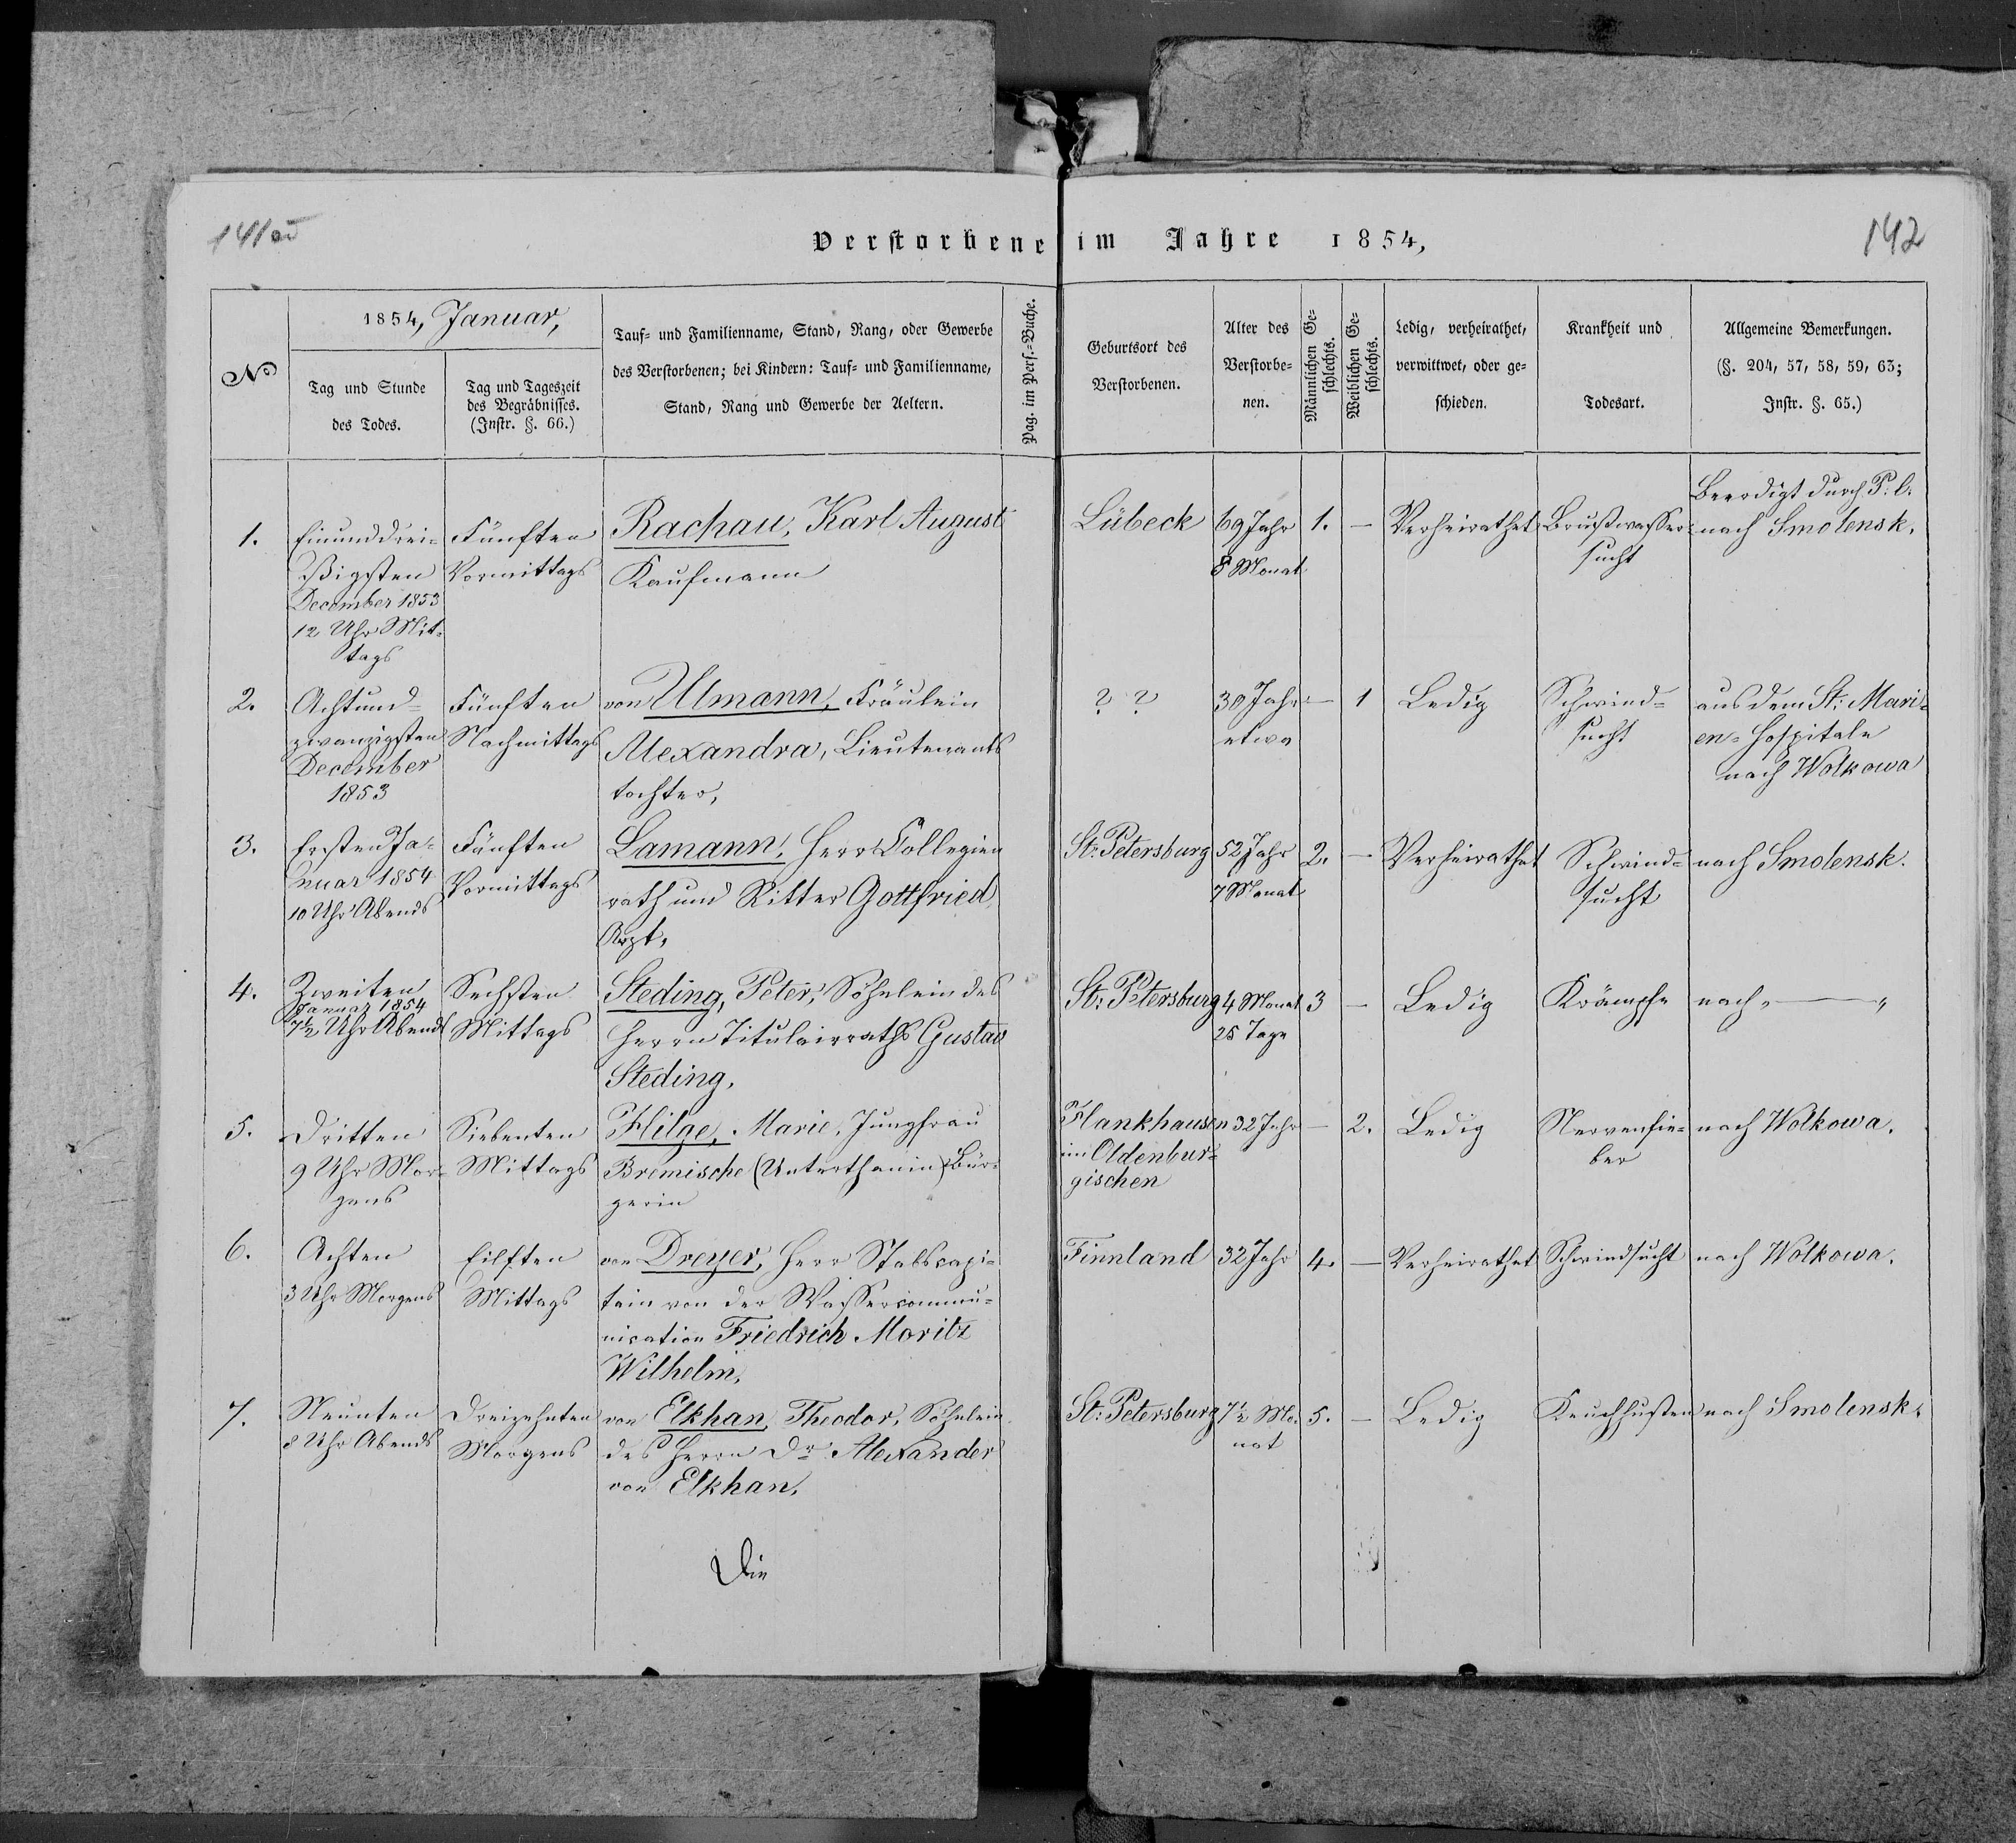 142
Verstorbene im Jahre 1854,
No
1854, Januar,
Tag und Stunde
des Todes.
Tag und Tageszeit
des Begräbnisses.
(Instr. §. 66.)
Tauf- und Familienname, Stand, Rang, oder Gewerbe
des Verstorbenen; bei Kindern: Tauf- und Familienname,
Stand, Rang und Gewerbe der Aeltern.
Pag. im Pers.-Buche.
Geburtsort des
Verstorbenen.
Alter des
Verstorbe-
nen.
Männlichen Ge-
schlechts.
Weiblichen Ge-
schlechts.
Ledig, verheirathet,
verwittwet, oder ge-
schieden.
Krankheit und
Todesart.
Allgemeine Bemerkungen.
(§. 204, 57, 58, 59, 63;
Instr. §. 65.)
1.
Einunddrei-
ßigsten
December 1853
12 Uhr Mit-
tags
Fünften
Vormittags
Rachau, Karl August
Kaufmann
Lübeck
69 Jahr
8 Monat
1.
—
Verheirathet
Brustwasser-
sucht
Beerdigt durch P. l.
nach Smolensk.
2.
Achtund-
zwanzigsten
December
1853
Fünften
Nachmittags
von Ulmann, Fräulein
Alexandra, Lieutenants
tochter,
? ?
30 Jahr
etwa
—
1
Ledig
Schwind-
sucht
aus dem St: Mari-
en-Hospitale
nach Wolkowa
3.
Ersten Ja-
nuar 1854
10 Uhr Abends
Fünften
Vormittags
Lamann, Herr Collegien
rath und Ritter Gottfried,
Arzt,
St: Petersburg
52 Jahr
7 Monat
2.
—
Verheirathet
Schwind-
sucht
nach Smolensk.
4.
Zweiten
Januar 1854
7½ Uhr Abends
Sechsten
Mittags
Steding, Peter, Söhnlein des
Herrn Titulairraths Gustav
Steding,
St: Petersburg
4 Monat
25 Tage
3
—
Ledig
Krämpfe
nach „ — „
5.
Dritten
9 Uhr Mor-
gens
Siebenten
Mittags
Hilge, Marie, Jungfrau
Bremische (Unterthanin) Bür-
gerin
Hankhausen
im Oldenbur-
gischen
32 Jahr
—
2.
Ledig
Nervenfie-
ber
nach Wolkowa.
6.
Achten
3 Uhr Morgens
Eilften
Mittags
von Dreyer, Herr Stabscapi-
tain von der Wassercommu-
nication Friedrich Moritz
Wilhelm,
Finnland
32 Jahr
4.
—
Verheirathet
Schwindsucht
nach Wolkowa.
7.
Neunten
8 Uhr Abends
Dreizehnten
Morgens
von Elkhan, Theodor, Söhnlein
des Herrn Dr Alexander
von Elkhan,
St: Petersburg
7½ Mo-
nat
5.
—
Ledig
Keuchhusten
nach Smolensk.
Die